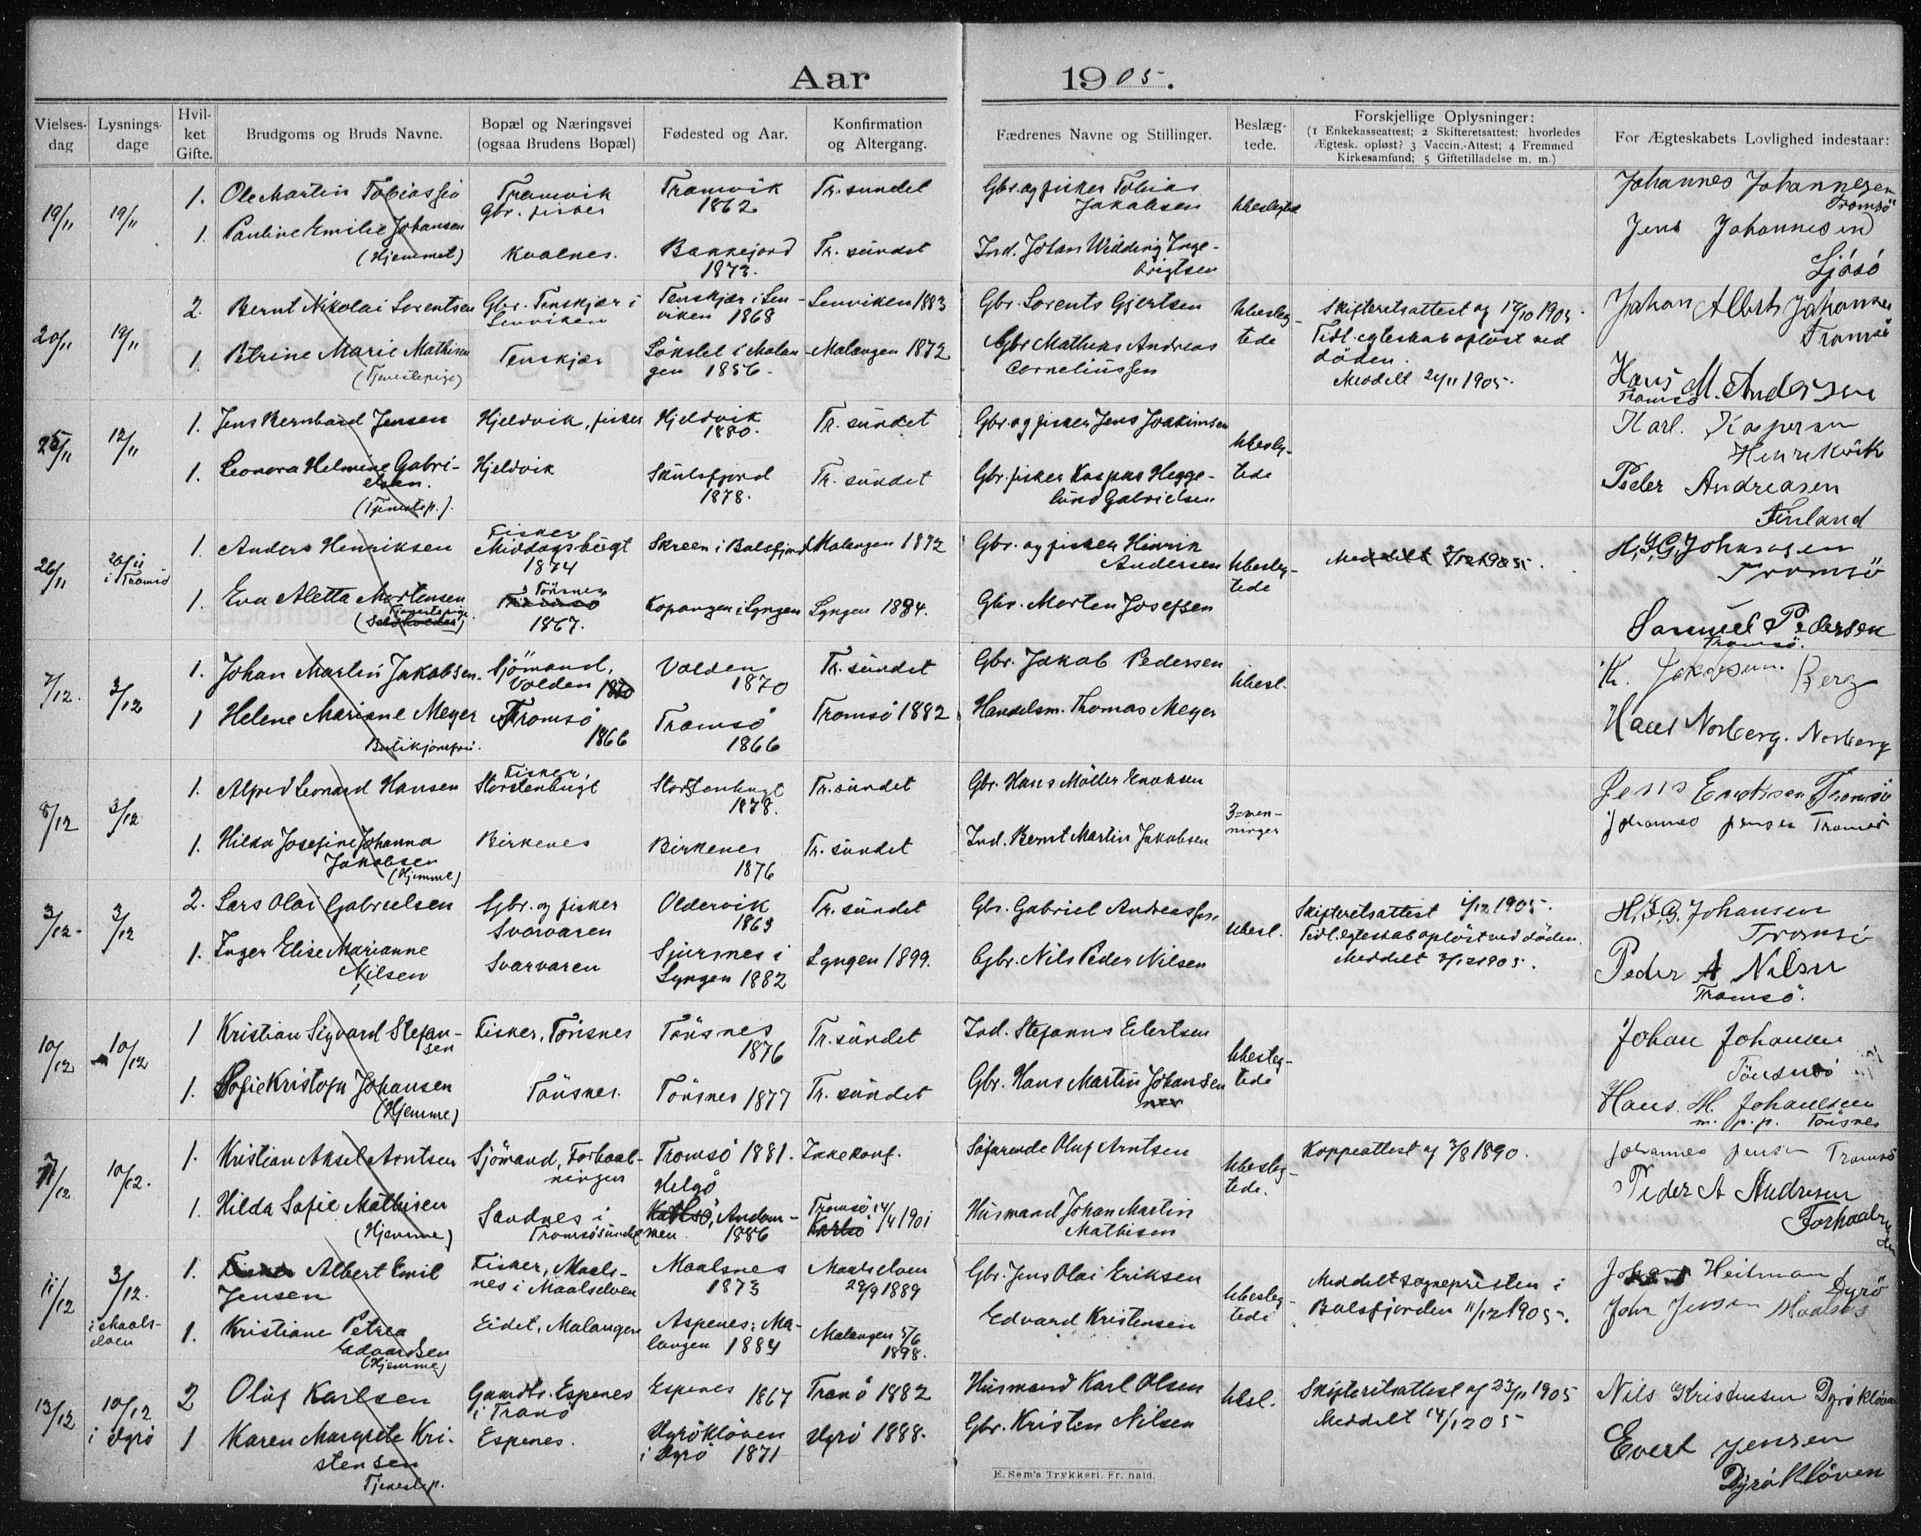 Aar 1905.
Vielses-dag
Lysnings-dage
Hvil-ket Gifte.
Brudgoms og Bruds Navne.
Bopæl og Næringsvei (ogsaa Brudens Bopæl)
Fødested og Aar.
Konfirmation og Altergang.
Fædrenes Navne og Stillinger.
Beslæg-tede.
Forskjellige Oplysninger: (1 Enkekasseattest; 2 Skifteretsattest; hvorledes Ægtesk. opløst? 3 Vaccin.-Attest; 4 Fremmed Kirkesamfund; 5 Giftetilladelse m. m.)
For Ægteskabets Lovlighed indestaar:
19/11 19/11 1. Ole Martin Tobiassen Tromvik Gbr. fisker Tromvik 1862 Tr. sundet Gbr. og fisker Tobias Jakobsen Ubeslegtede Johannes Johannesen Tromsö
1 Pauline Emilie Johansen (Hjemmet) Kvalnes. Bakkejord 1873. Tr. sundet Ind. Johan Widding Ingebrigtsen Jens Johannesen
20/11 19/11 2. Bernt Nikolai Lorentsen Gbr. Tenskjær i Lenviken Tenskjær i Lenviken 1868 Lenviken 1883 Gbr. Lorents Gjertsen Ubeslegtede Skifteretsattest af 17/10 1905. Tidl. egteskab opløst ved döden. Meddelt 21/11 1905. Johan Albert Johansen Tromsö
1. Petrine Marie Mathisen (Tjenestepige) Tenskjær Lökslet i Malangen 1856. Malangen 1872 Gbr. Matheus Andreas Corneliussen Hans M. Andersen Tromsö
25/11 12/11 1. Jens Bernhard Jensen Hjeldvik, fisker Hjeldvik 1880. Tr. sundet Gbr. og fisker Jens Joakimsen Ubeslegtede Karl. Kaspersen Henrikvik
1. Leonora Helmine Gabrielsen. (Tjenestep.) Hjeldvik Skulsfjord 1878. Tr. sundet Gbr. fisker Kaspar Heggelund Gabrielsen Peder Andreasen Finland
26/11 26/11 i Tromsö 1. Anders Henriksen Fisker Middagsbugt 1874 Skreen i Balsfjord Malangen 1872 Gbr. og fisker Hinrik Andersen Ubeslegtede Meddelt 2/12 1905. H. J. G. Johansen Tromsö
1. Eva Aletta Mortensen (Tjenestepige) Tönsnes 1867. Kopangen i Lyngen Lyngen 1884. Gbr. Morten Josefsen Samuel Pedersen Tromsö.
7/12. 3/12 1. Johan Martin Jakobsen. Sjömand, Volden 1870 Volden 1870 Tr. sundet Gbr. Jakob Pedersen Ubesl. K. Jakobsen Berg
1 Helene Mariane Meyer Butikjomfru. Tromsö 1866 Tromsö 1866 Tromsö 1882 Handelsm. Thomas Meyer Hans Norberg. Norberg
8/12 3/12 1. Alfred Leonard Hansen Fisker, Storstenbugt Storstenbugt 1878. Tr. sundet Gbr. Hans Möller Enoksen 3=menninger Jens Tromsö
1. Hilda Josefine Johanna Jakobsen (Hjemme) Birkenes Birkenes 1876 Tr. sundet Ind. Bernt Martin Jakobsen Johannes Jensen Tromsö
3/12. 3/12 2. Lars Olai Gabrielsen Gbr. og fisker Svarvaren Oldervik 1863 Tr. sundet Gbr. Gabriel Andreassen Ubesl. Skifteretsattest 1/12 1905. Tidl. egteskab opløst ved döden. Meddelt 2/12 1905. H. J. G. Johansen Tromsö
1. Inger Elise Marianne Nilsen Svarvaren Sjursnes i Lyngen 1882 Lyngen 1899. Gbr. Nils Peder Nilsen Peder A Nilsen Tromsö.
10/12 10/12 1 Kristian Sigvard Stefansen Fisker, Tönsnes Tönsnes 1876 Tr. sundet Ind. Stefanus Eilertsen Ubeslegtede Johan Johansen Tönsnes
1. Sofie Kristofa Johansen (Hjemme) Tönsnes. Tönsnes 1877 Tr. sundet Gbr. Hans Martin Johansen Hans. M. Johansen m. p. p. Tönsnes
7/12 10/12. 1. Kristian Aksel Arntsen Sjömand, Forhaabningen Tromsö 1881. Ikke konf. Söfarende Oluf Arntsen Ubeslegtede. Koppeattest af 2/8 1890. Johannes Jensen Tromsö
1. Hilda Sofie Mathisen (Hjemme) Sandnes i Tromsösundet Helgö 1886 Tromsö 14/4 1901 Husmand Johan Martin Mathisen Peder A Andresen Forhaabn
11/12 3/12. i Maalselven 1. Albert Emil Jensen Fisker, Maalsnes i Maalselven Maalsnes 1873 Maalselven 29/9 1889 Gbr. Jens Olai Eriksen Ubeslegtede Meddelt sognepresten i Balsfjorden 11/12 1905. Johan Heitman Dyrö
1. Kristiane Petrea Edvardsen (Hjemme) Eidet, Malangen Aspenes, Malangen 1884 Malangen 5/6 1898. Edvard Kristensen John Jensen Maalsnes
13/12 10/12 i Dyrö 2 Oluf Karlsen Gaardbr. Espenes i Tranö Espenes 1867 Tranö 1882 Husmand Karl Olsen Ubesl. Skifteretsattest af 23/11 1905 Meddelt 14/12 05 Nils Kristensen Dyrökløven
1 Karen Margrete Kristensen Tjenestep. Espenes. Dyrökløven i Dyrö 1871 Dyrö 1888. Gbr. Kristen Nilsen Evert Jensen Dyrökløven
E. Sem's Trykkeri. Fr. hald.